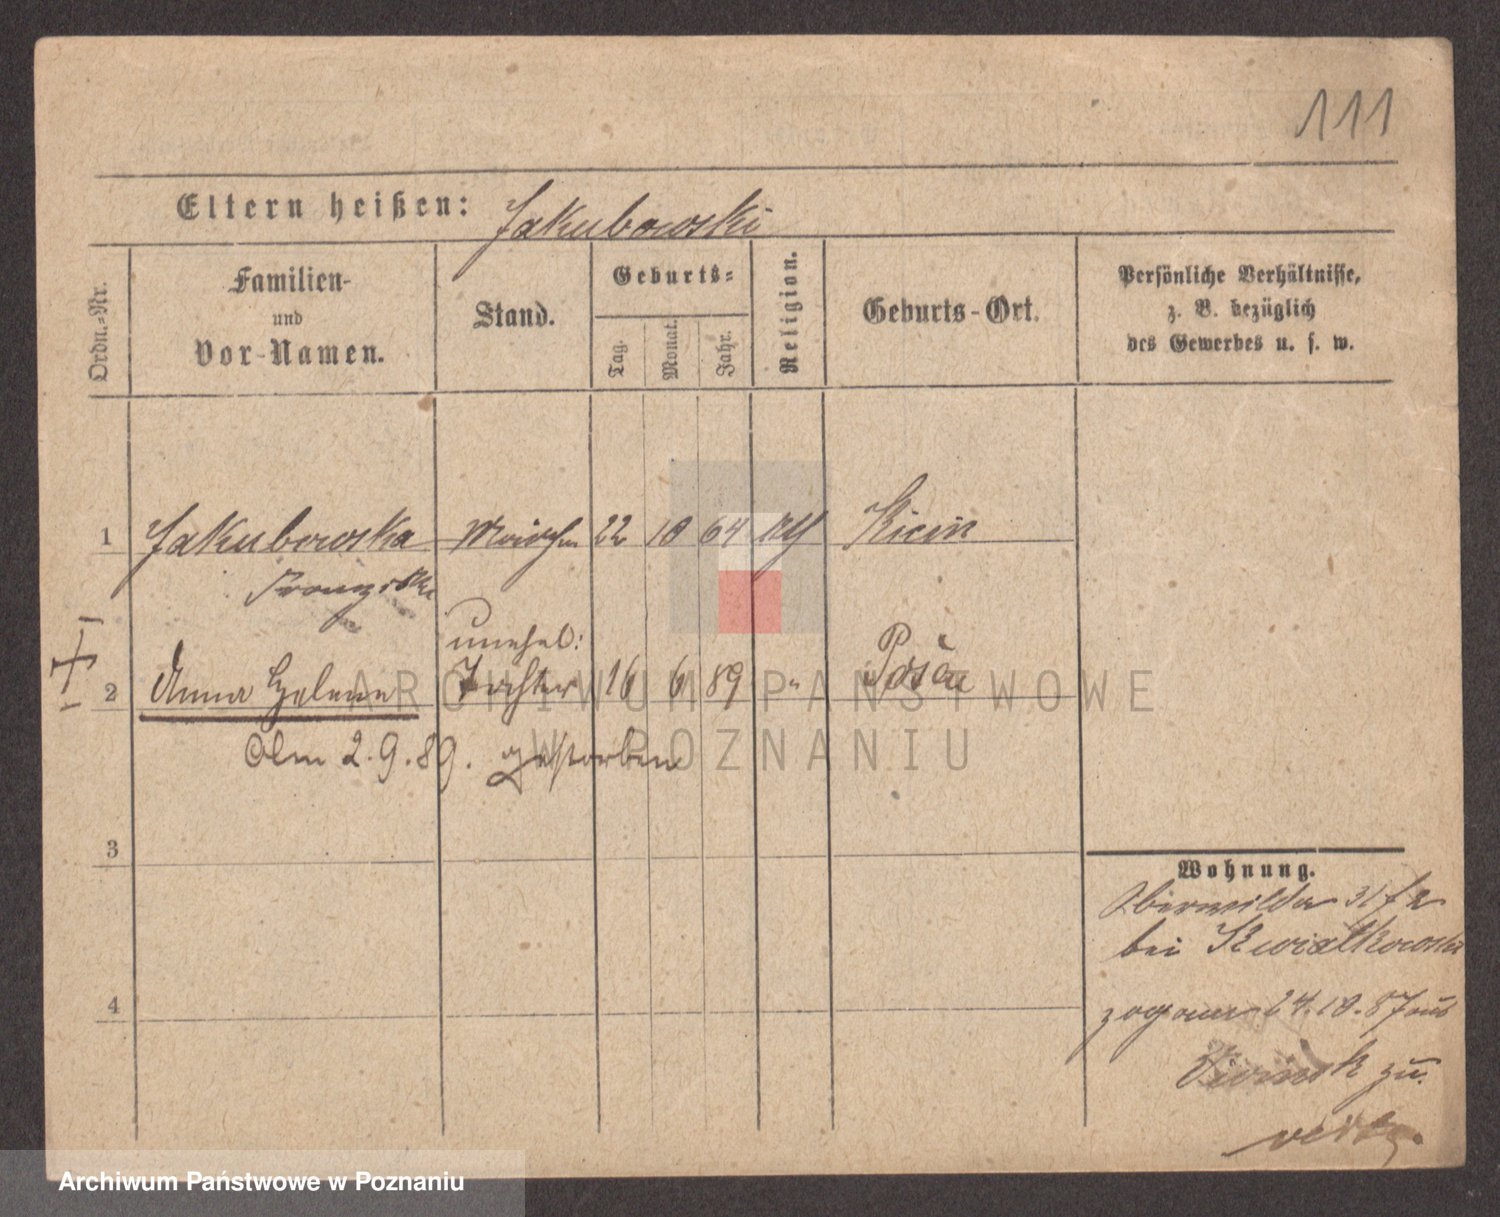 111
Eltern heißen: Jakubowski
Ordn.-Nr.
Familien-
und
Vor-Namen.
Stand.
Geburts-
Tag.
Monat.
Jahr.
Religion.
Geburts-Ort.
Persönliche Verhältnisse,
z. B. bezüglich
des Gewerbes u. s. w.
1 Jakubowska 22 10 64 Kicin
Franziska
unehel:
2 Anna Helene Tochter 16 6 89 " Posen
Am 2.9.89. gestorben
3
4
Wohnung.
Oberwilda 31
bei Kwiatkowski
24.10.87 aus
zu
ARCHIWUM PAŃSTWOWE
W POZNANIU
Archiwum Państwowe w Poznaniu